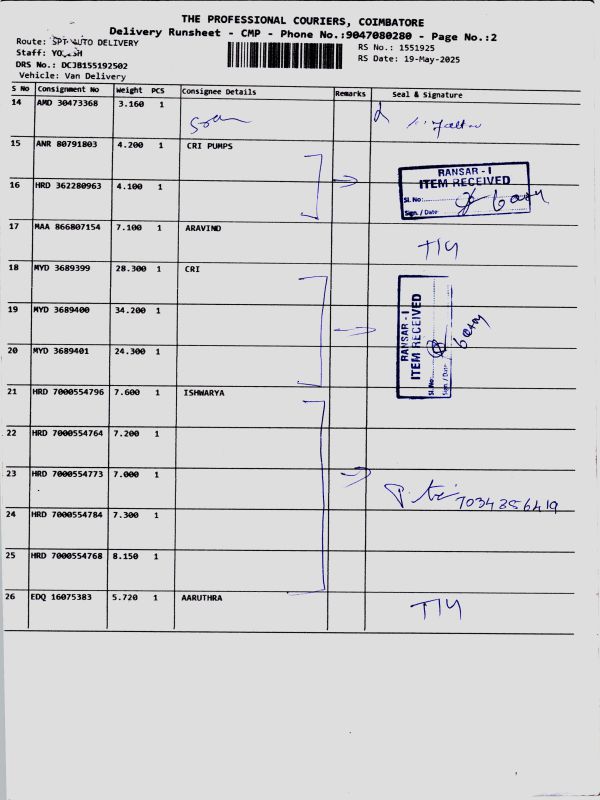 THE PROFESSIONAL COURIERS, COIMBATORE
Delivery Runsheet - CMP - Phone No.:9047080280 - Page No.:2
Route: SPT AUTO DELIVERY
Staff:
DRS No.: DCJB155192502
Vehicle: Van Delivery
RS No.: 1551925
RS Date: 19-May-2025
S No Consignment No Weight PCS Consignee Details Remarks Seal & Signature
14 AMD 30473368 3.160 1
15 ANR 80791803 4.200 1 CRI PUMPS
16 HRD 362280963 4.100 1
RANSAR - I
ITEM RECEIVED
Sl. No:
Sign. / Date
17 MAA 866807154 7.100 1 ARAVIND
18 MYD 3689399 28.300 1 CRI
19 MYD 3689400 34.200 1
20 MYD 3689401 24.300 1
RANSAR - I
ITEM RECEIVED
Sl. No:
Sign / Date
21 HRD 7000554796 7.600 1 ISHWARYA
22 HRD 7000554764 7.200 1
23 HRD 7000554773 7.000 1
7034356419
24 HRD 7000554784 7.300 1
25 HRD 7000554768 8.150 1
26 EDQ 16075383 5.720 1 AARUTHRA